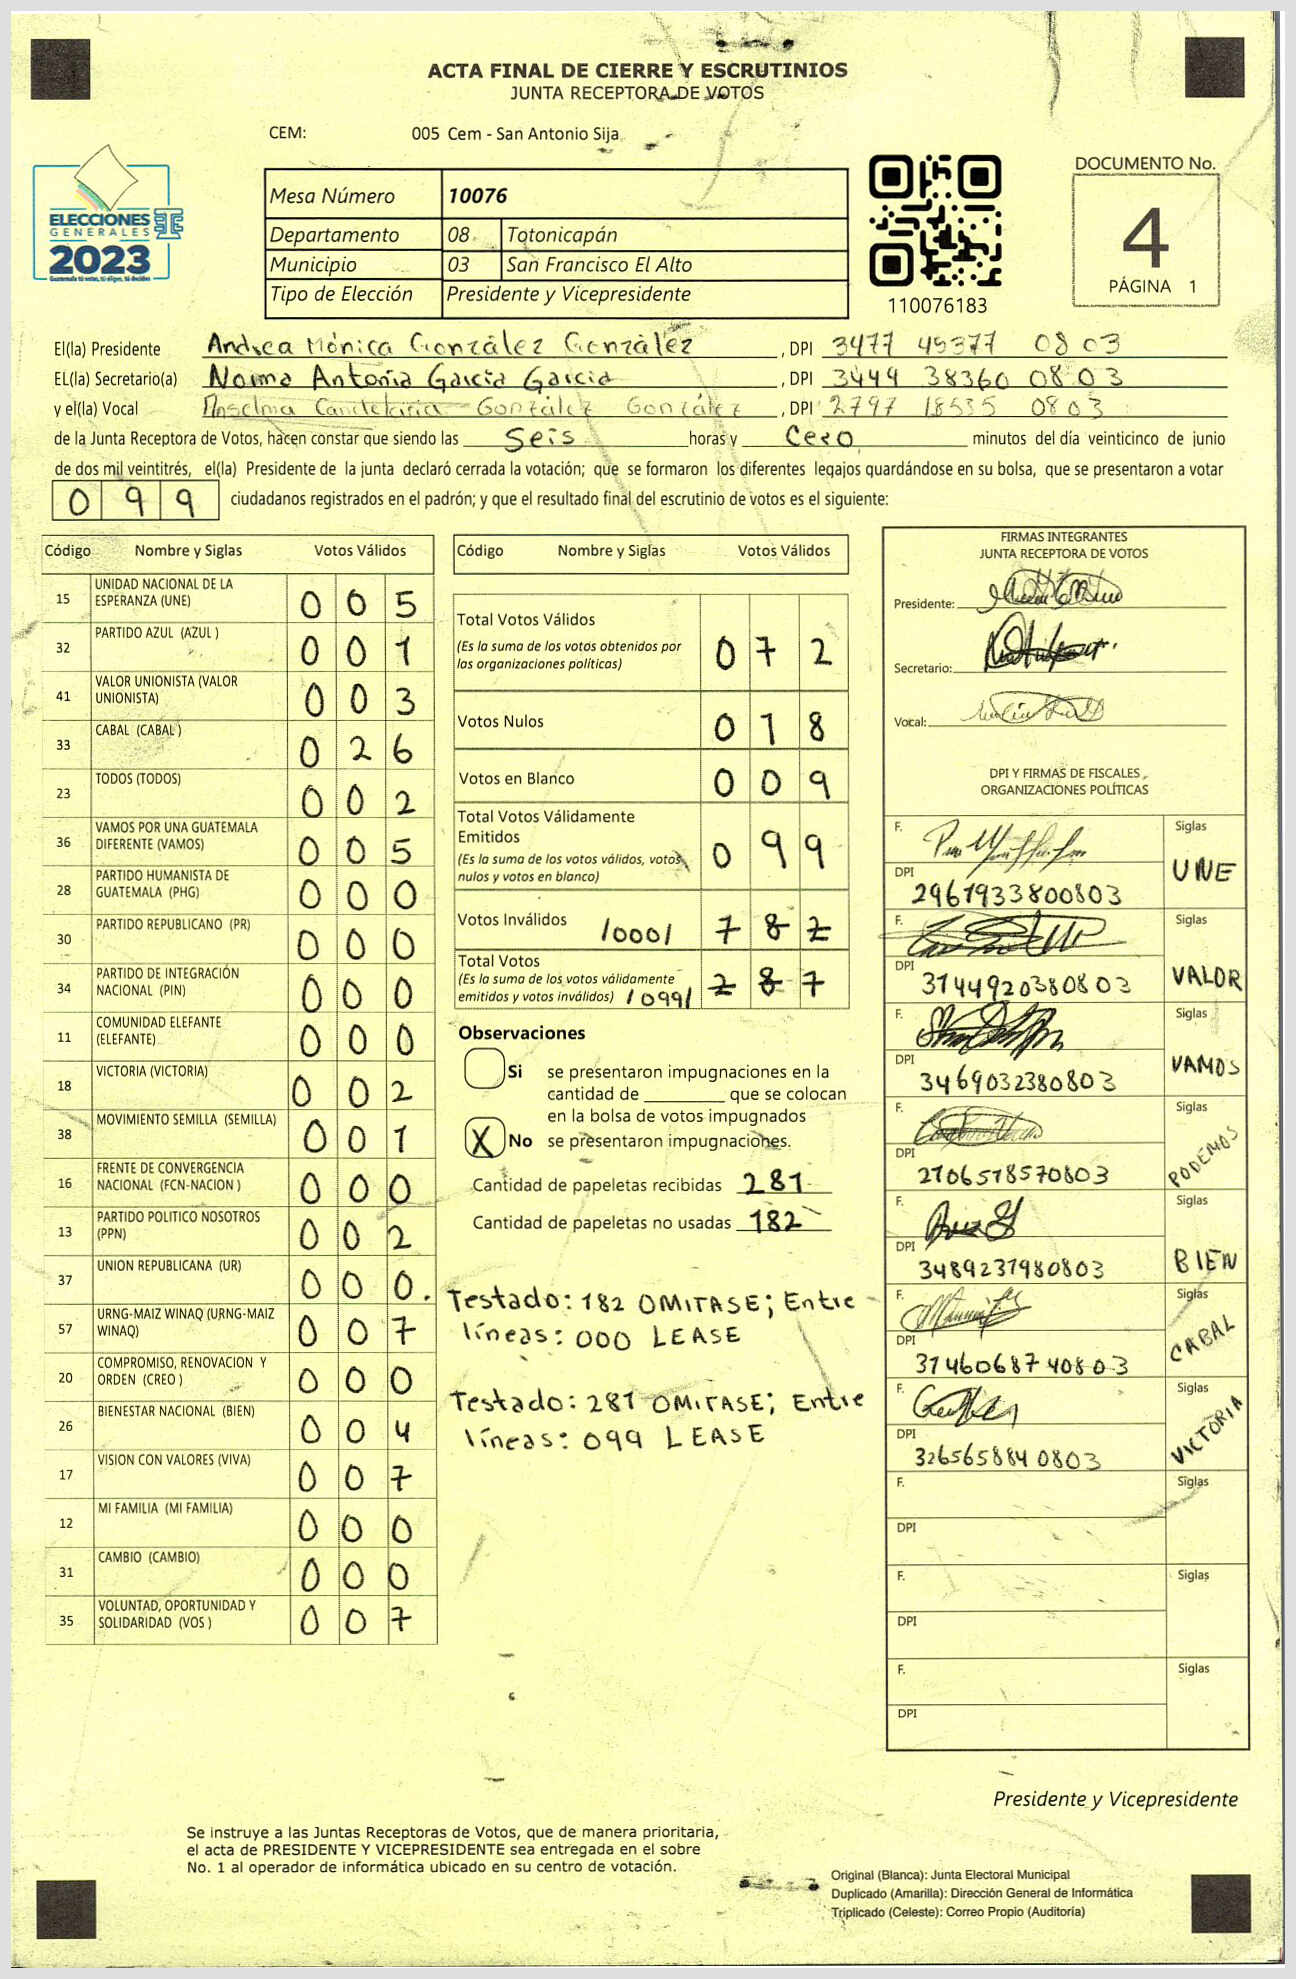 ACTA FINAL DE CIERRE Y ESCRUTINIOS
JUNTA RECEPTORA DE VOTOS
CEM: 005 Cem - San Antonio Sija
ELECCIONES
GENERALES
2023
Guatemala tú votas, tú eliges, tú decides
Mesa Número 10076
Departamento 08 Totonicapán
Municipio 03 San Francisco El Alto
Tipo de Elección Presidente y Vicepresidente
110076183
DOCUMENTO No.
4
PÁGINA 1
El(la) Presidente Andrea Mónica González González , DPI 3477 45377 0803
EL(la) Secretario(a) Norma Antonia García García , DPI 3444 38360 0803
y el(la) Vocal Anselma Candelaria González González , DPI 2797 18535 0803
de la Junta Receptora de Votos, hacen constar que siendo las Seis horas y Cero minutos del día veinticinco de junio
de dos mil veintitrés, el(la) Presidente de la junta declaró cerrada la votación; que se formaron los diferentes legajos quardándose en su bolsa, que se presentaron a votar
099 ciudadanos registrados en el padrón; y que el resultado final del escrutinio de votos es el siguiente:
Código Nombre y Siglas Votos Válidos
15 UNIDAD NACIONAL DE LA ESPERANZA (UNE) 005
32 PARTIDO AZUL (AZUL ) 001
41 VALOR UNIONISTA (VALOR UNIONISTA) 003
33 CABAL (CABAL ) 026
23 TODOS (TODOS) 002
36 VAMOS POR UNA GUATEMALA DIFERENTE (VAMOS) 005
28 PARTIDO HUMANISTA DE GUATEMALA (PHG) 000
30 PARTIDO REPUBLICANO (PR) 000
34 PARTIDO DE INTEGRACIÓN NACIONAL (PIN) 000
11 COMUNIDAD ELEFANTE (ELEFANTE) 000
18 VICTORIA (VICTORIA) 002
38 MOVIMIENTO SEMILLA (SEMILLA) 001
16 FRENTE DE CONVERGENCIA NACIONAL (FCN-NACION ) 000
13 PARTIDO POLITICO NOSOTROS (PPN) 002
37 UNION REPUBLICANA (UR) 000.
57 URNG-MAIZ WINAQ (URNG-MAIZ WINAQ) 007
20 COMPROMISO, RENOVACION Y ORDEN (CREO ) 000
26 BIENESTAR NACIONAL (BIEN) 004
17 VISION CON VALORES (VIVA) 007
12 MI FAMILIA (MI FAMILIA) 000
31 CAMBIO (CAMBIO) 000
35 VOLUNTAD, OPORTUNIDAD Y SOLIDARIDAD (VOS ) 007
Código Nombre y Siglas Votos Válidos
Total Votos Válidos 072
(Es la suma de los votos obtenidos por
las organizaciones políticas)
Votos Nulos 018
Votos en Blanco 009
Total Votos Válidamente
Emitidos 099
(Es la suma de los votos válidos, votos
nulos y votos en blanco)
Votos Inválidos /000/ 182
Total Votos
(Es la suma de los votos válidamente
emitidos y votos inválidos) /099/ 281
Observaciones
Si se presentaron impugnaciones en la
cantidad de ________ que se colocan
en la bolsa de votos impugnados
X No se presentaron impugnaciones.
Cantidad de papeletas recibidas 281
Cantidad de papeletas no usadas 182
Testado: 182 OMITASE; Entre
líneas: 000 LEASE
Testado: 281 OMITASE; Entre
líneas: 099 LEASE
FIRMAS INTEGRANTES
JUNTA RECEPTORA DE VOTOS
Presidente:
Secretario:
Vocal:
DPI Y FIRMAS DE FISCALES
ORGANIZACIONES POLÍTICAS
F. Siglas
DPI 2961933800803 UNE
F. Siglas
DPI 3144920380803 VALOR
F. Siglas
DPI 3469032380803 VAMOS
F. Siglas
DPI 2706578570803 PODEMOS
F. Siglas
DPI 3489237980803 BIEN
F. Siglas
DPI 3146068740803 CABAL
F. Siglas
DPI 3265658840803 VICTORIA
F. Siglas
DPI
F. Siglas
DPI
F. Siglas
DPI
Presidente y Vicepresidente
Se instruye a las Juntas Receptoras de Votos, que de manera prioritaria,
el acta de PRESIDENTE Y VICEPRESIDENTE sea entregada en el sobre
No. 1 al operador de informática ubicado en su centro de votación.
Original (Blanca): Junta Electoral Municipal
Duplicado (Amarilla): Dirección General de Informática
Triplicado (Celeste): Correo Propio (Auditoría)